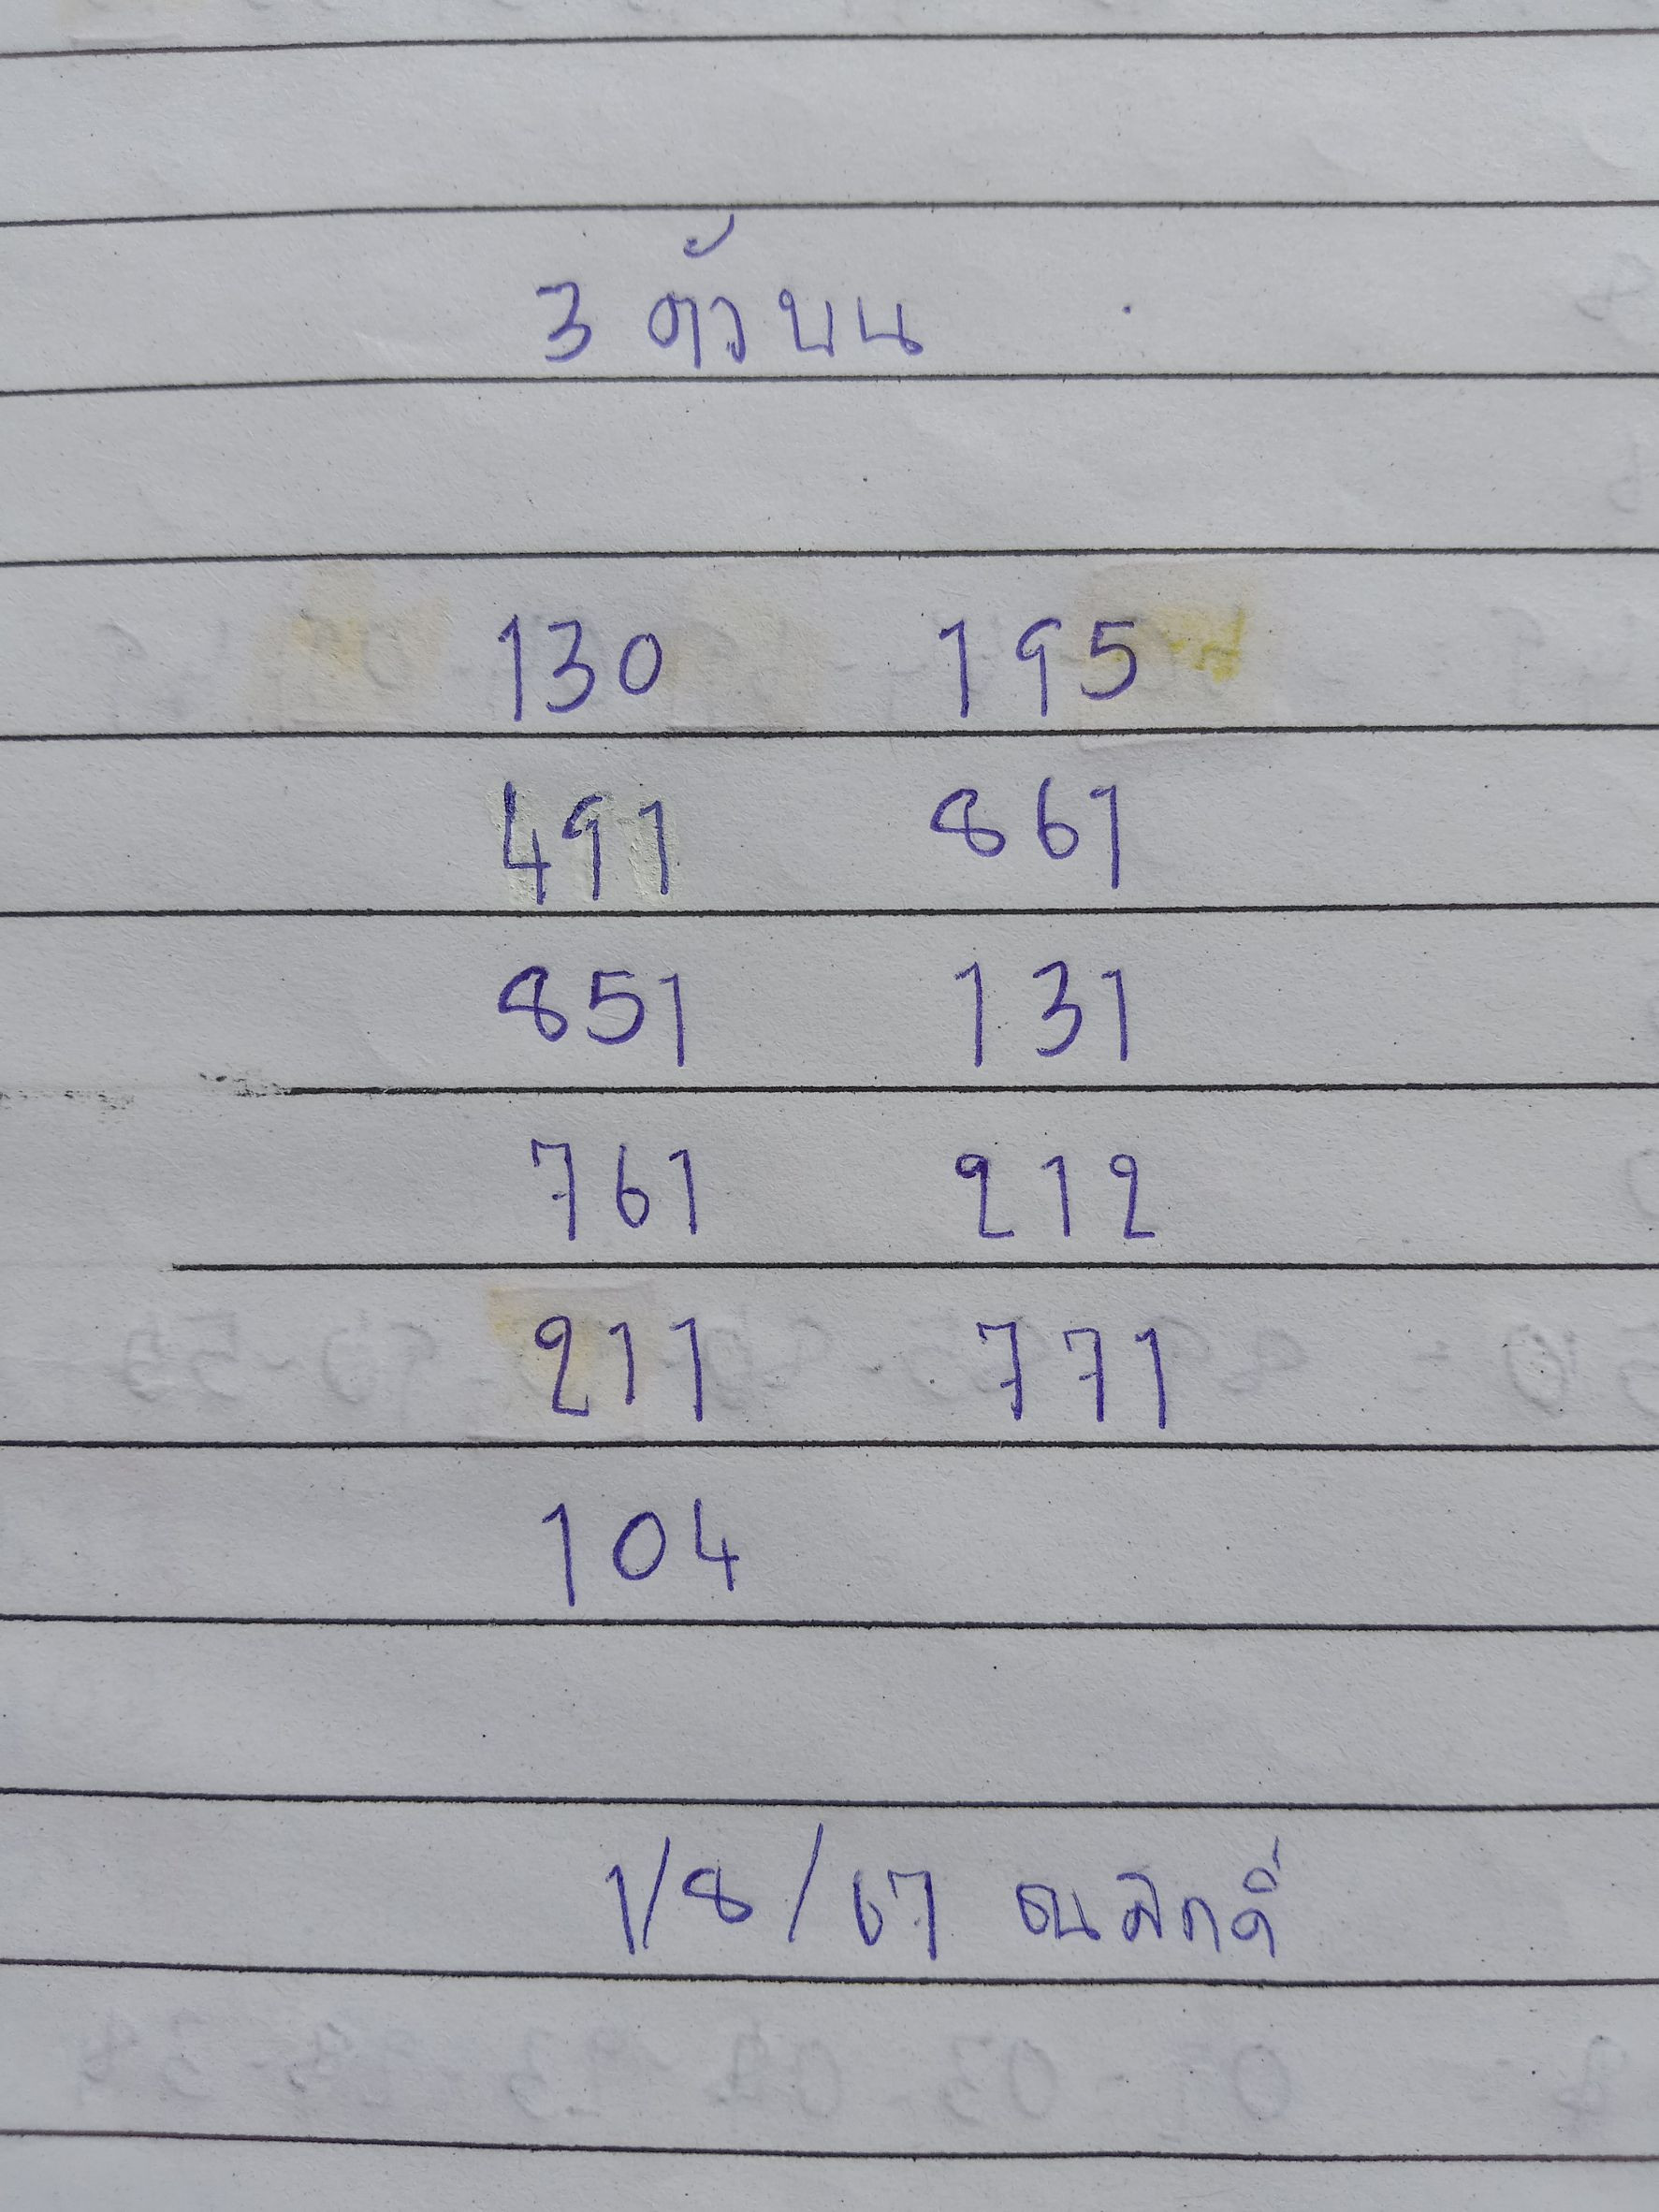 3 ตัวบน
130 195
491 861
851 131
761 212
211 771
104
1/8/67